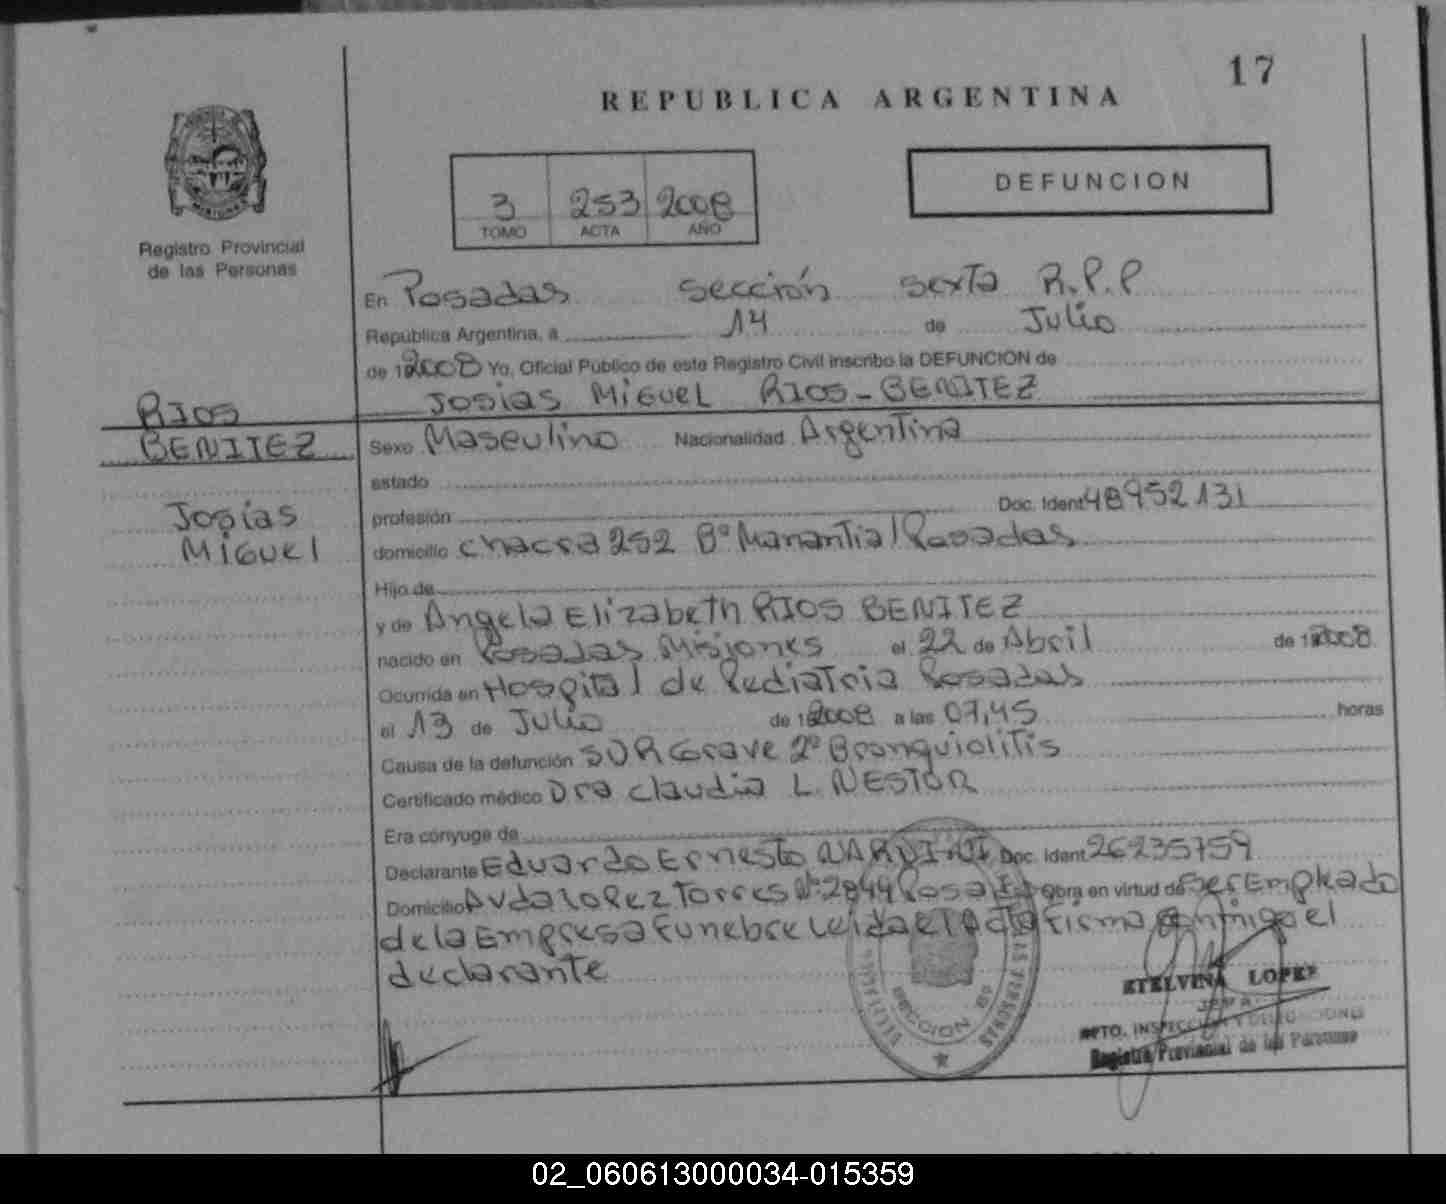 17
REPUBLICA ARGENTINA
DEFUNCION
3 253 2008
TOMO ACTA AÑO
MISIONES
Registro Provincial
de las Personas
En Posadas sección sexta R.P.P
República Argentina, a 14 de Julio
de 1 2008 Yo, Oficial Público de este Registro Civil inscribo la DEFUNCION de
Josias Miguel RIOS-BENITEZ
RIOS
BENITEZ
Josias
Miguel
Sexo Masculino Nacionalidad Argentina
estado
profesión Doc. Ident 48952131
domicilio chacra 252 Bº Manantial Posadas
Hijo de
y de Angela Elizabeth RIOS BENITEZ
nacido en Posadas Misiones el 22 de Abril de 1 2008
Ocurrida en Hospital de Pediatria Posadas
el 13 de Julio de 1 2008 a las 07,45 horas
Causa de la defunción Grave 2º Bronquiolitis
Certificado médico Dra Claudia L. NESTOR
Era cónyuge de
Declarante Eduardo Ernesto Doc. Ident 26235759
Domicilio Avda Lopez Torres Nº 2844 Posadas Obra en virtud de ser Empleado
de la Empresa Funebre Leida el Acta Firma conmigo el
declarante
SECCION 6º
DE LAS PERSONAS
ETELVINA LOPEZ
JEFA
DPTO. INSPECCION Y DELEGACIONES
Registro Provincial de las Personas
02_060613000034-015359